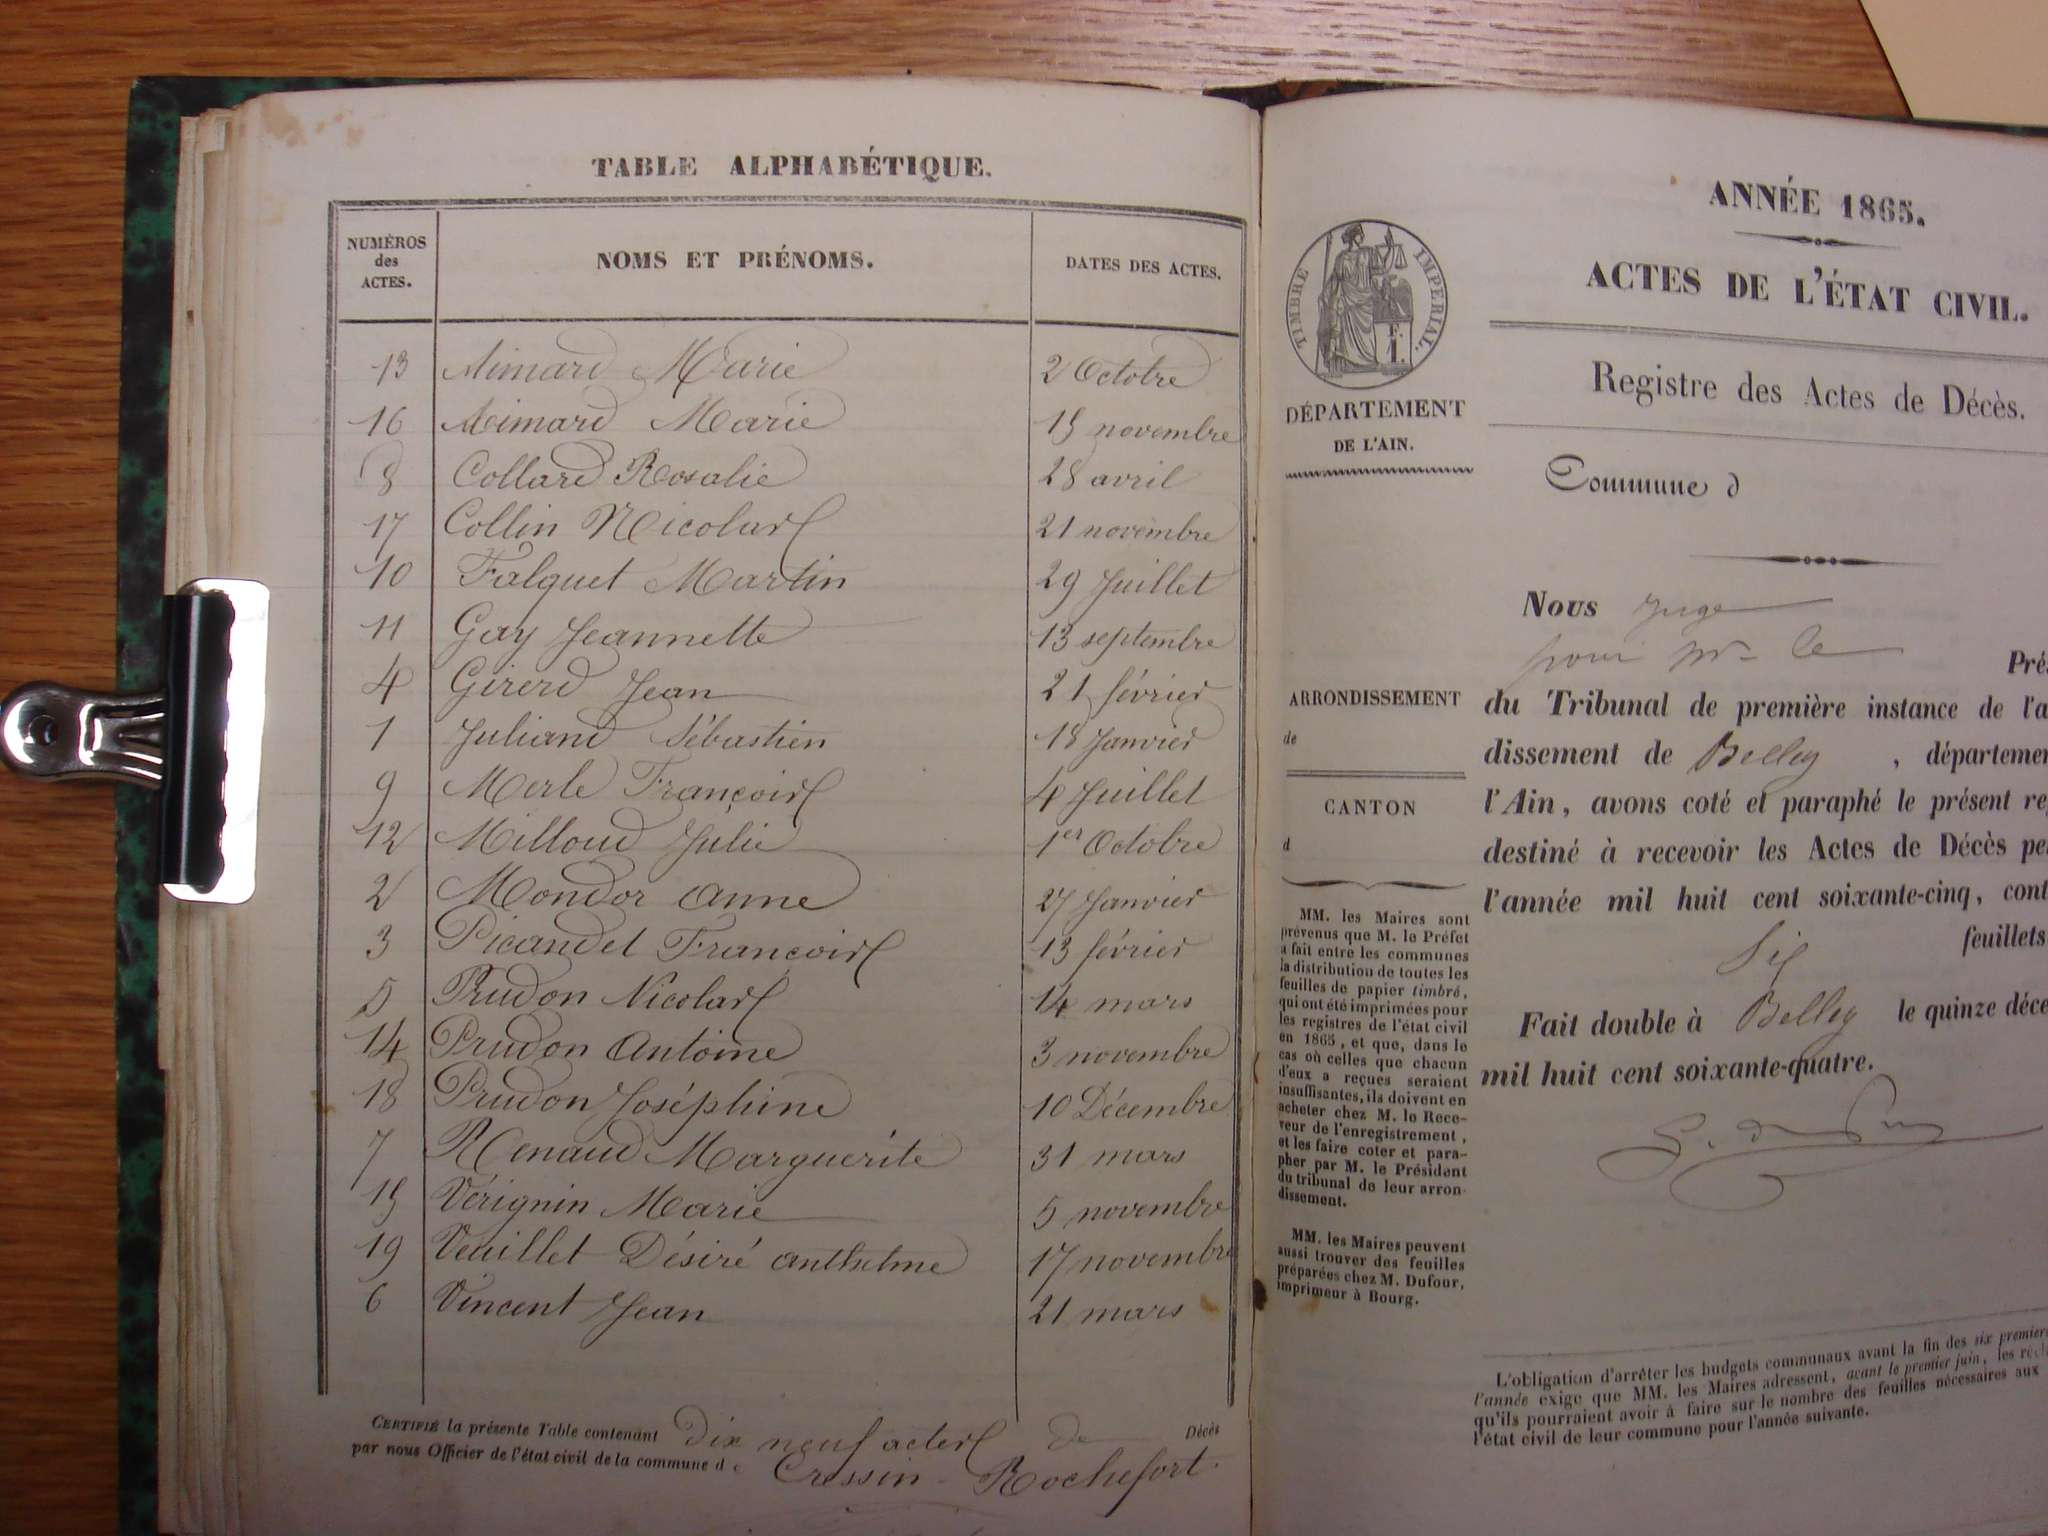 TABLE ALPHABÉTIQUE.
NUMÉROS des ACTES. NOMS ET PRÉNOMS. DATES DES ACTES.
13 Aimard Marie 2 Octobre
16 Aimard Marie 15 novembre
8 Collard Rosalie 28 avril
17 Collin Nicolas 21 novembre
10 Falquet Martin 29 Juillet
11 Gay Jeannette 13 septembre
4 Girerd Jean 21 février
1 Juliand Sébastien 18 Janvier
9 Merle François 4 Juillet
12 Milloud Julie 1er Octobre
2 Mondor Anne 27 Janvier
3 Picandet François 13 février
5 Prudon Nicolas 14 mars
14 Prudon Antoine 3 novembre
18 Prudon Joséphine 10 Décembre
7 Renaud Marguerite 31 mars
15 Vérignin Marie 5 novembre
19 Veuillet Désiré anthelme 17 novembre
6 Vincent Jean 21 mars
CERTIFIÉ la présente Table contenant dix neuf actes de Décès
par nous Officier de l'état civil de la commune de Cressin-Rochefort.
ANNÉE 1865.
ACTES DE L'ÉTAT CIVIL.
Registre des Actes de Décès.
TIMBRE IMPERIAL.
DÉPARTEMENT
DE L'AIN.
ARRONDISSEMENT
de
CANTON
d
MM. les Maires sont
prévenus que M. le Préfet
a fait entre les communes
la distribution de toutes les
feuilles de papier timbré,
qui ont été imprimées pour
les registres de l'état civil
en 1865, et que, dans le
cas où celles que chacun
d'eux a reçues seraient
insuffisantes, ils doivent en
acheter chez M. le Rece-
veur de l'enregistrement,
et les faire coter et para-
pher par M. le Président
du tribunal de leur arron-
dissement.
MM. les Maires peuvent
aussi trouver des feuilles
préparées chez M. Dufour,
imprimeur à Bourg.
Commune d
Nous Juge
pour Mr le Pré
du Tribunal de première instance de l'a
dissement de Belley, départemen
l'Ain, avons coté et paraphé le présent re
destiné à recevoir les Actes de Décès pe
l'année mil huit cent soixante-cinq, cont
Six feuillets
Fait double à Belley le quinze déce
mil huit cent soixante-quatre.
L'obligation d'arrêter les budgets communaux avant la fin des six premier
l'année exige que MM. les Maires adressent, avant le premier juin, les récl
qu'ils pourraient avoir à faire sur le nombre des feuilles nécessaires aux
l'état civil de leur commune pour l'année suivante.